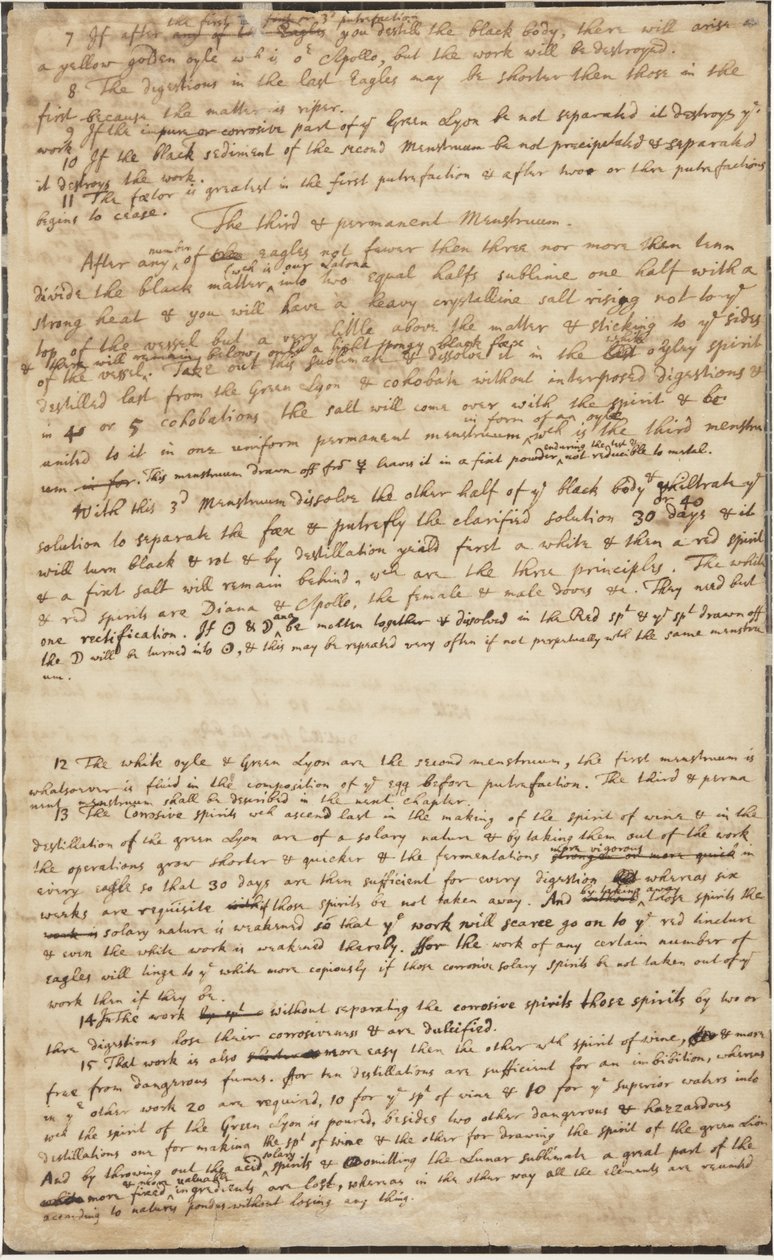 the first or 3d putrefaction
7 If after any of ye Eagles you destill the black body, there will arise a
a yellow golden oyle wch is or Apollo, but the work will be destroyed.
8 The digestions in the last Eagles may be shorter then those in the
first because the matter is riper.
9 If the impure or corrosive part of ye Green Lyon be not separated it destroys ye
work.
10 If the black sediment of the second Menstruum be not precipitated & separated
it destroys the work.
11 The fœtor is greatest in the first putrefaction & after two or thre putrefactions
begins to cease.
The third & permanent Menstruum.
number
After any of the Eagles not fewer then three nor more then tenn
(wch is our Latona
divide the black matter into two equal halfs sublime one half with a
strong heat & you will have a heavy crystalline salt rising not to ye
top of the vessel but a very little above the matter & sticking to ye sides
& there will remain below onely a light spongy black fæx
white
of the vessel. Take out this sublimate & dissolve it in the last oyley spirit
destilled last from the Green Lyon & cohobate without interposed digestions &
in 4 or 5 cohobations the salt will come over with the spirit & be
in form of an oyle
united to it in one uniform permanent menstruum wch is the third menstru
enduring the test &
um is for. This menstruum drawn off from ☿ leavs it in a fixt powder not reducible to metal.
With this 3d Menstruum dissolve the other half of ye black body & philtrate ye
or 40
solution to separate the fæx & putrefy the clarified solution 30 days & it
will turn black & rot & by destillation yeild first a white & then a red spirit
& a fixt salt will remain behind, wch are the three principles. The white
& red spirits are Diana & Apollo, the female & male Doves &c. They need but
one rectification. If ☉ & ☽ana be molten together & disolved in the Red spt & ye spt drawn off
the ☽ will be turned into ☉, & this may be repeated very often if not perpetually wth the same menstru
um.
12 The white oyle & Green Lyon are the second menstruum, the first menstruum is
whatsoever is fluid in the composition of ye egg before putrefaction. The third & perma
nent menstruum shall be described in the next chapter.
13 The Corrosive spirits wch ascend last in the making of the spirit of wine & in the
destillation of the green Lyon are of a solary nature & by taking them out of the work
more vigorous
the operations grow shorter & quicker & the fermentations stronger or more quick in
every eagle so that 30 days are then sufficient for every digestion whereas six
by taking away
weeks are requisite if those spirits be not taken away. And without those spirits the
work is solary nature is weakened so that ye work will scarce go on to ye red tincture
& even the white work is weakened thereby. ffor the work of any certain number of
Eagles will tinge to ye white more copiously if those corrosive solary spirits be not taken out of ye
work then if they be.
14 In The work without separating the corrosive spirits those spirits by two or
thre digestions lose their corrosiveness & are dulcified.
15 That work is also more easy then the other wth spirit of wine, & more
free from dangerous fumes. ffor ten destillations are sufficient for an inbibition, whereas
in ye other work 20 are required, 10 for ye spt of wine & 10 for ye superior waters into
wch the spirit of the Green Lyon is poured, besides two other dangerous & hazzardous
destillations one for making the spt of wine & the other for drawing the spirit of the green Lion
solary
And by throwing out the acid spirits & omitting the Lunar sublimate a great part of the
& more valuable
white more fixed ingredients are lost, whereas in the other way all the elements are reunited
according to natures pondus without losing any thing.